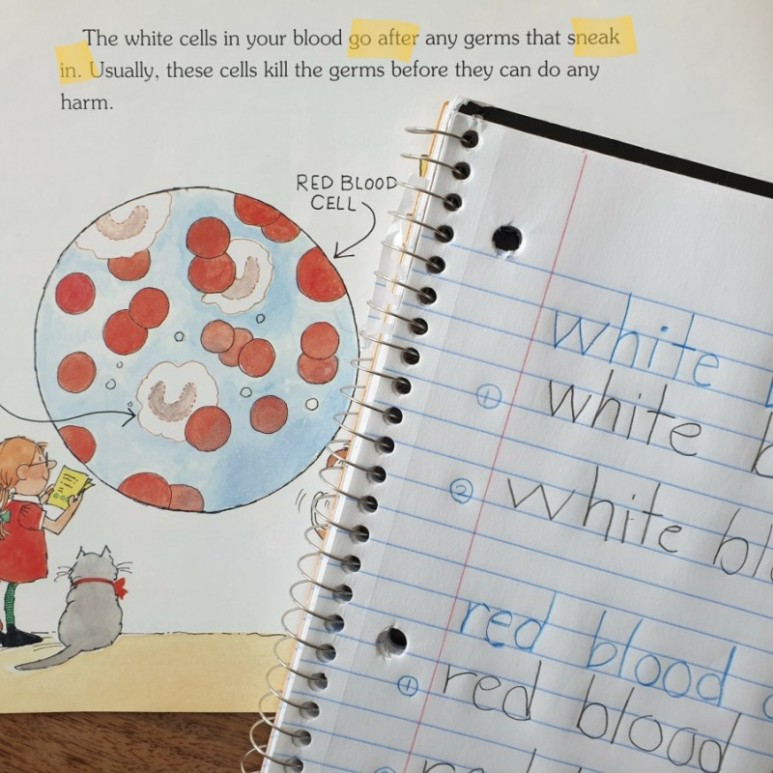 The white cells in your blood go after any germs that sneak
in. Usually, these cells kill the germs before they can do any
harm.
RED BLOOD
CELL
white
① white
② white
red blood
① red blood